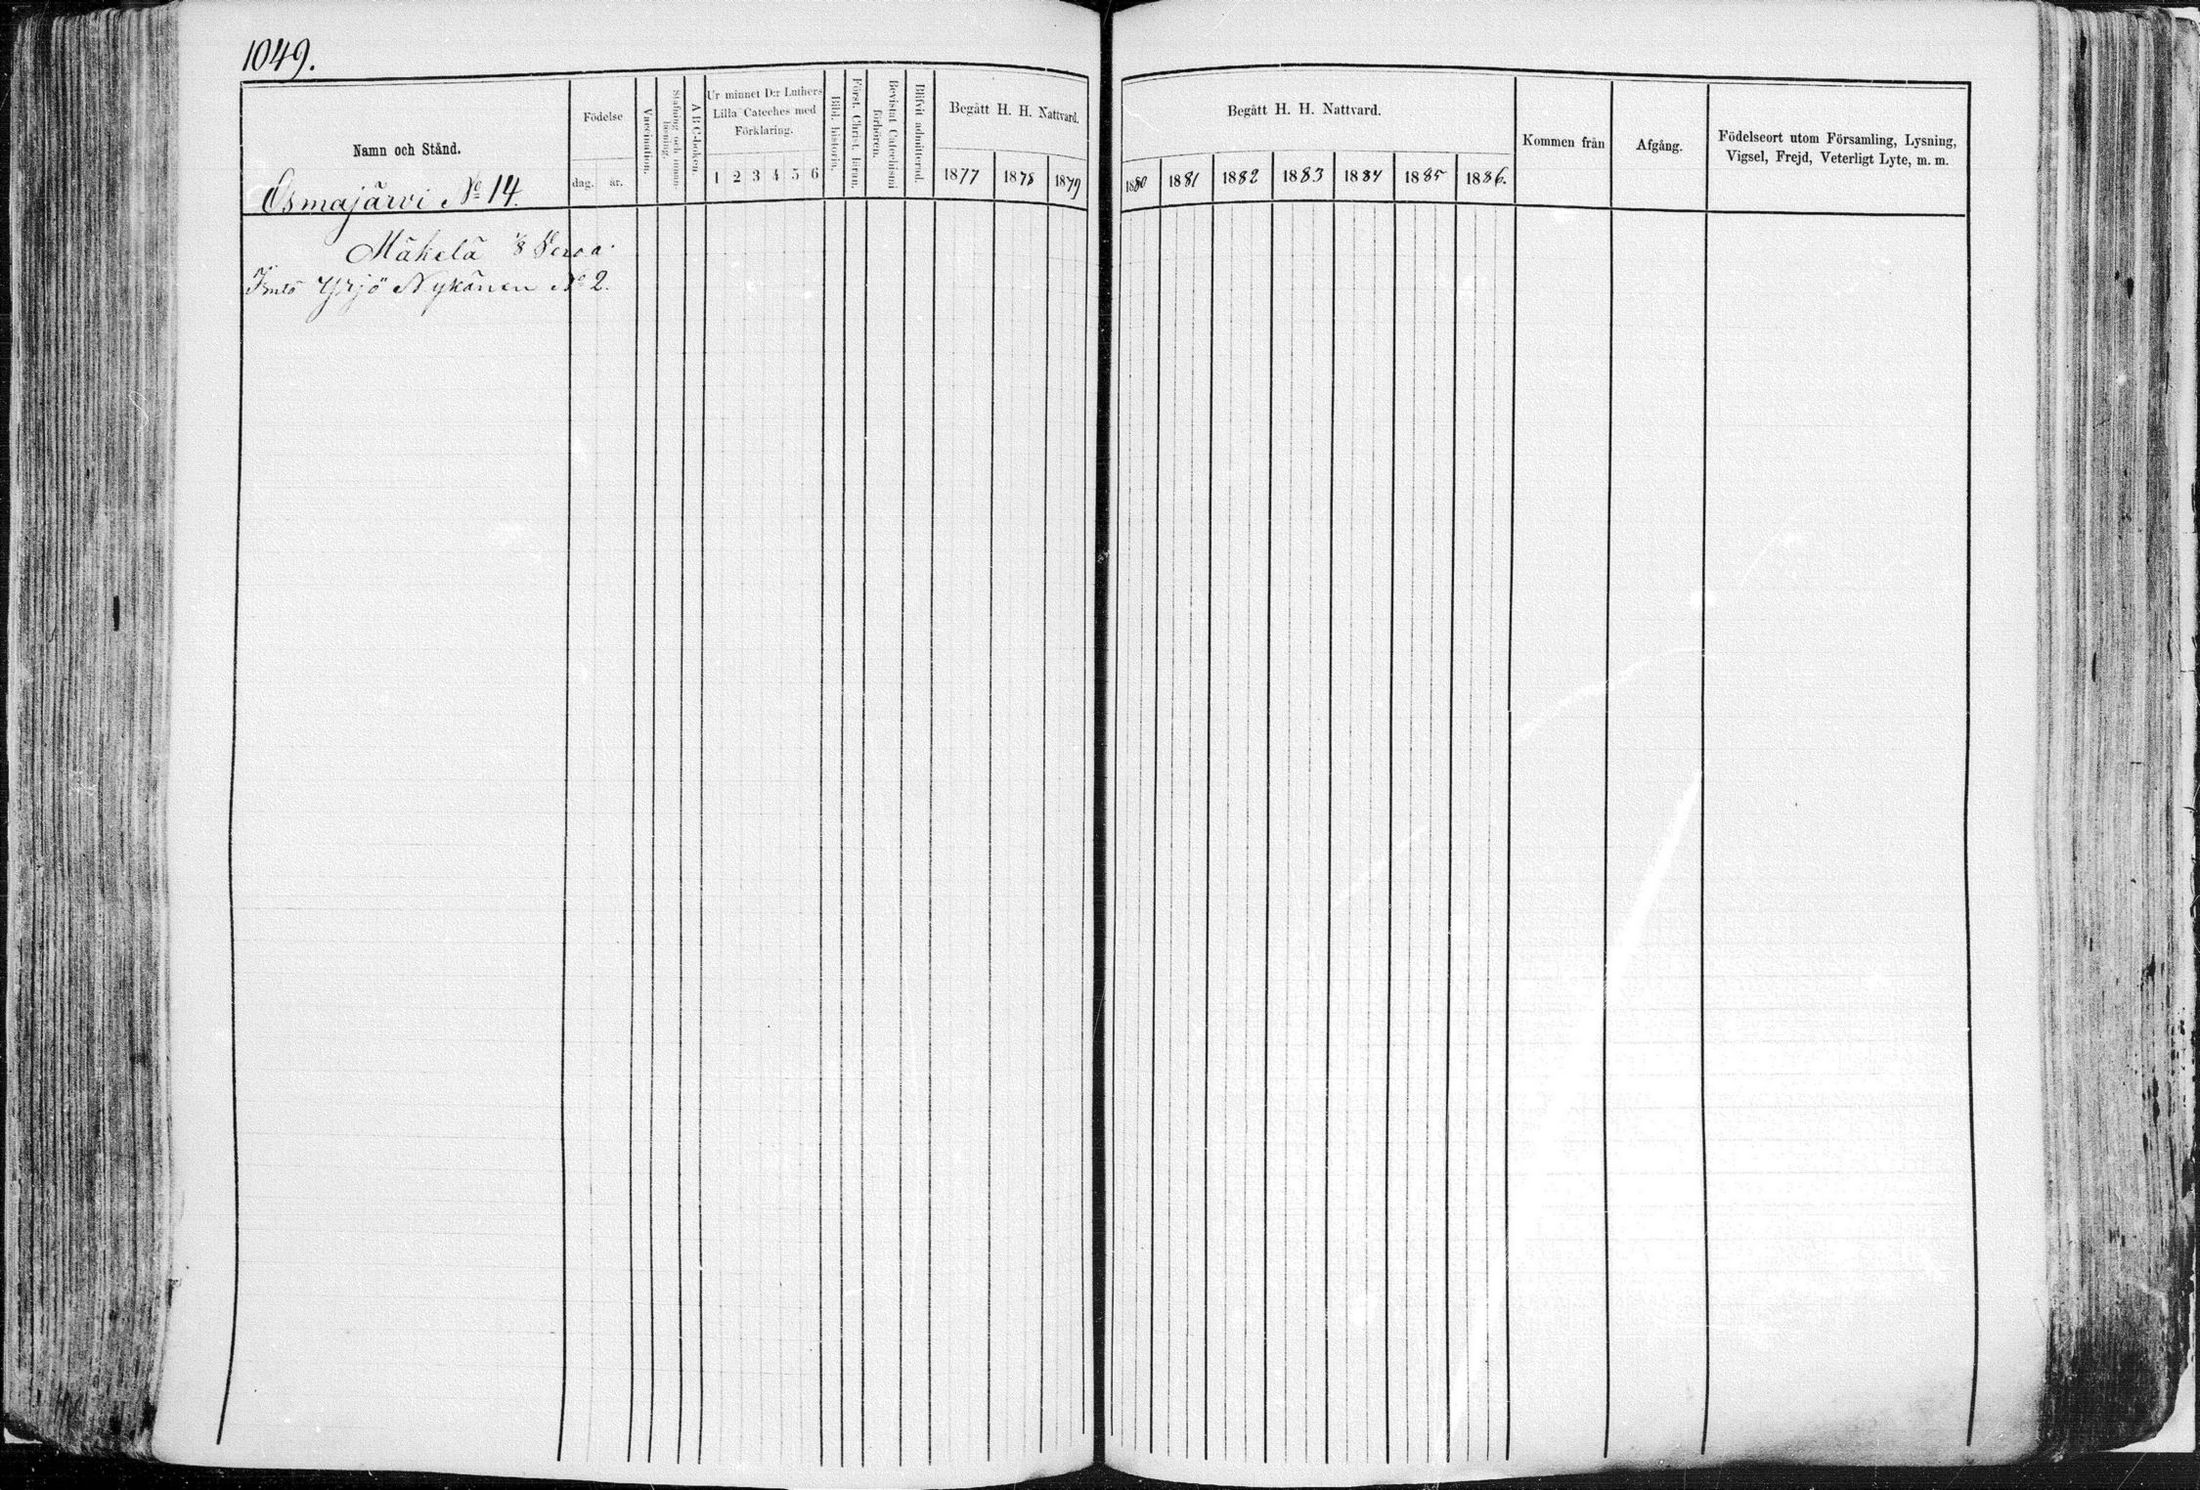 1049.
Namn och Stånd.
Osmajärvi No 14.
Födelse
dag. år.
Vaccination.
Stafning och innan läsning.
A B C-boken.
Ur minnet D:r Luthers
Lilla Cateches med
Förklaring.
1 2 3 4 5 6
Bibl. historia.
Först. Christ. läran.
Bevistat Catechismi förhören.
Blifvit admitterad.
Begått H. H. Nattvard.
1877 1878 1879
Begått H. H. Nattvard.
1880 1881 1882 1883 1884 1885 1886.
Kommen från
Afgång.
Födelseort utom Församling, Lysning,
Vigsel, Frejd, Veterligt Lyte, m. m.
Mäkelä
Yrjö Nykänen No 2.